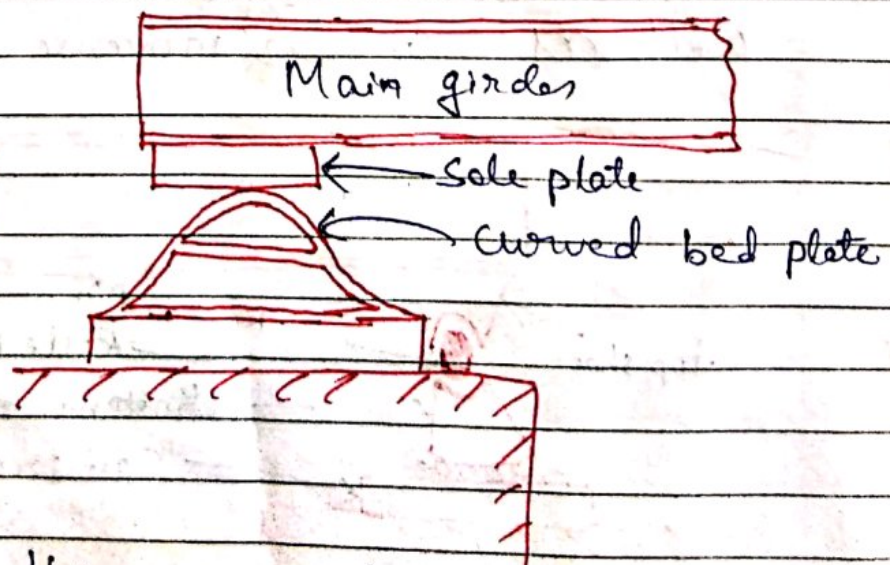 Main girder
Sole plate
Curved bed plate